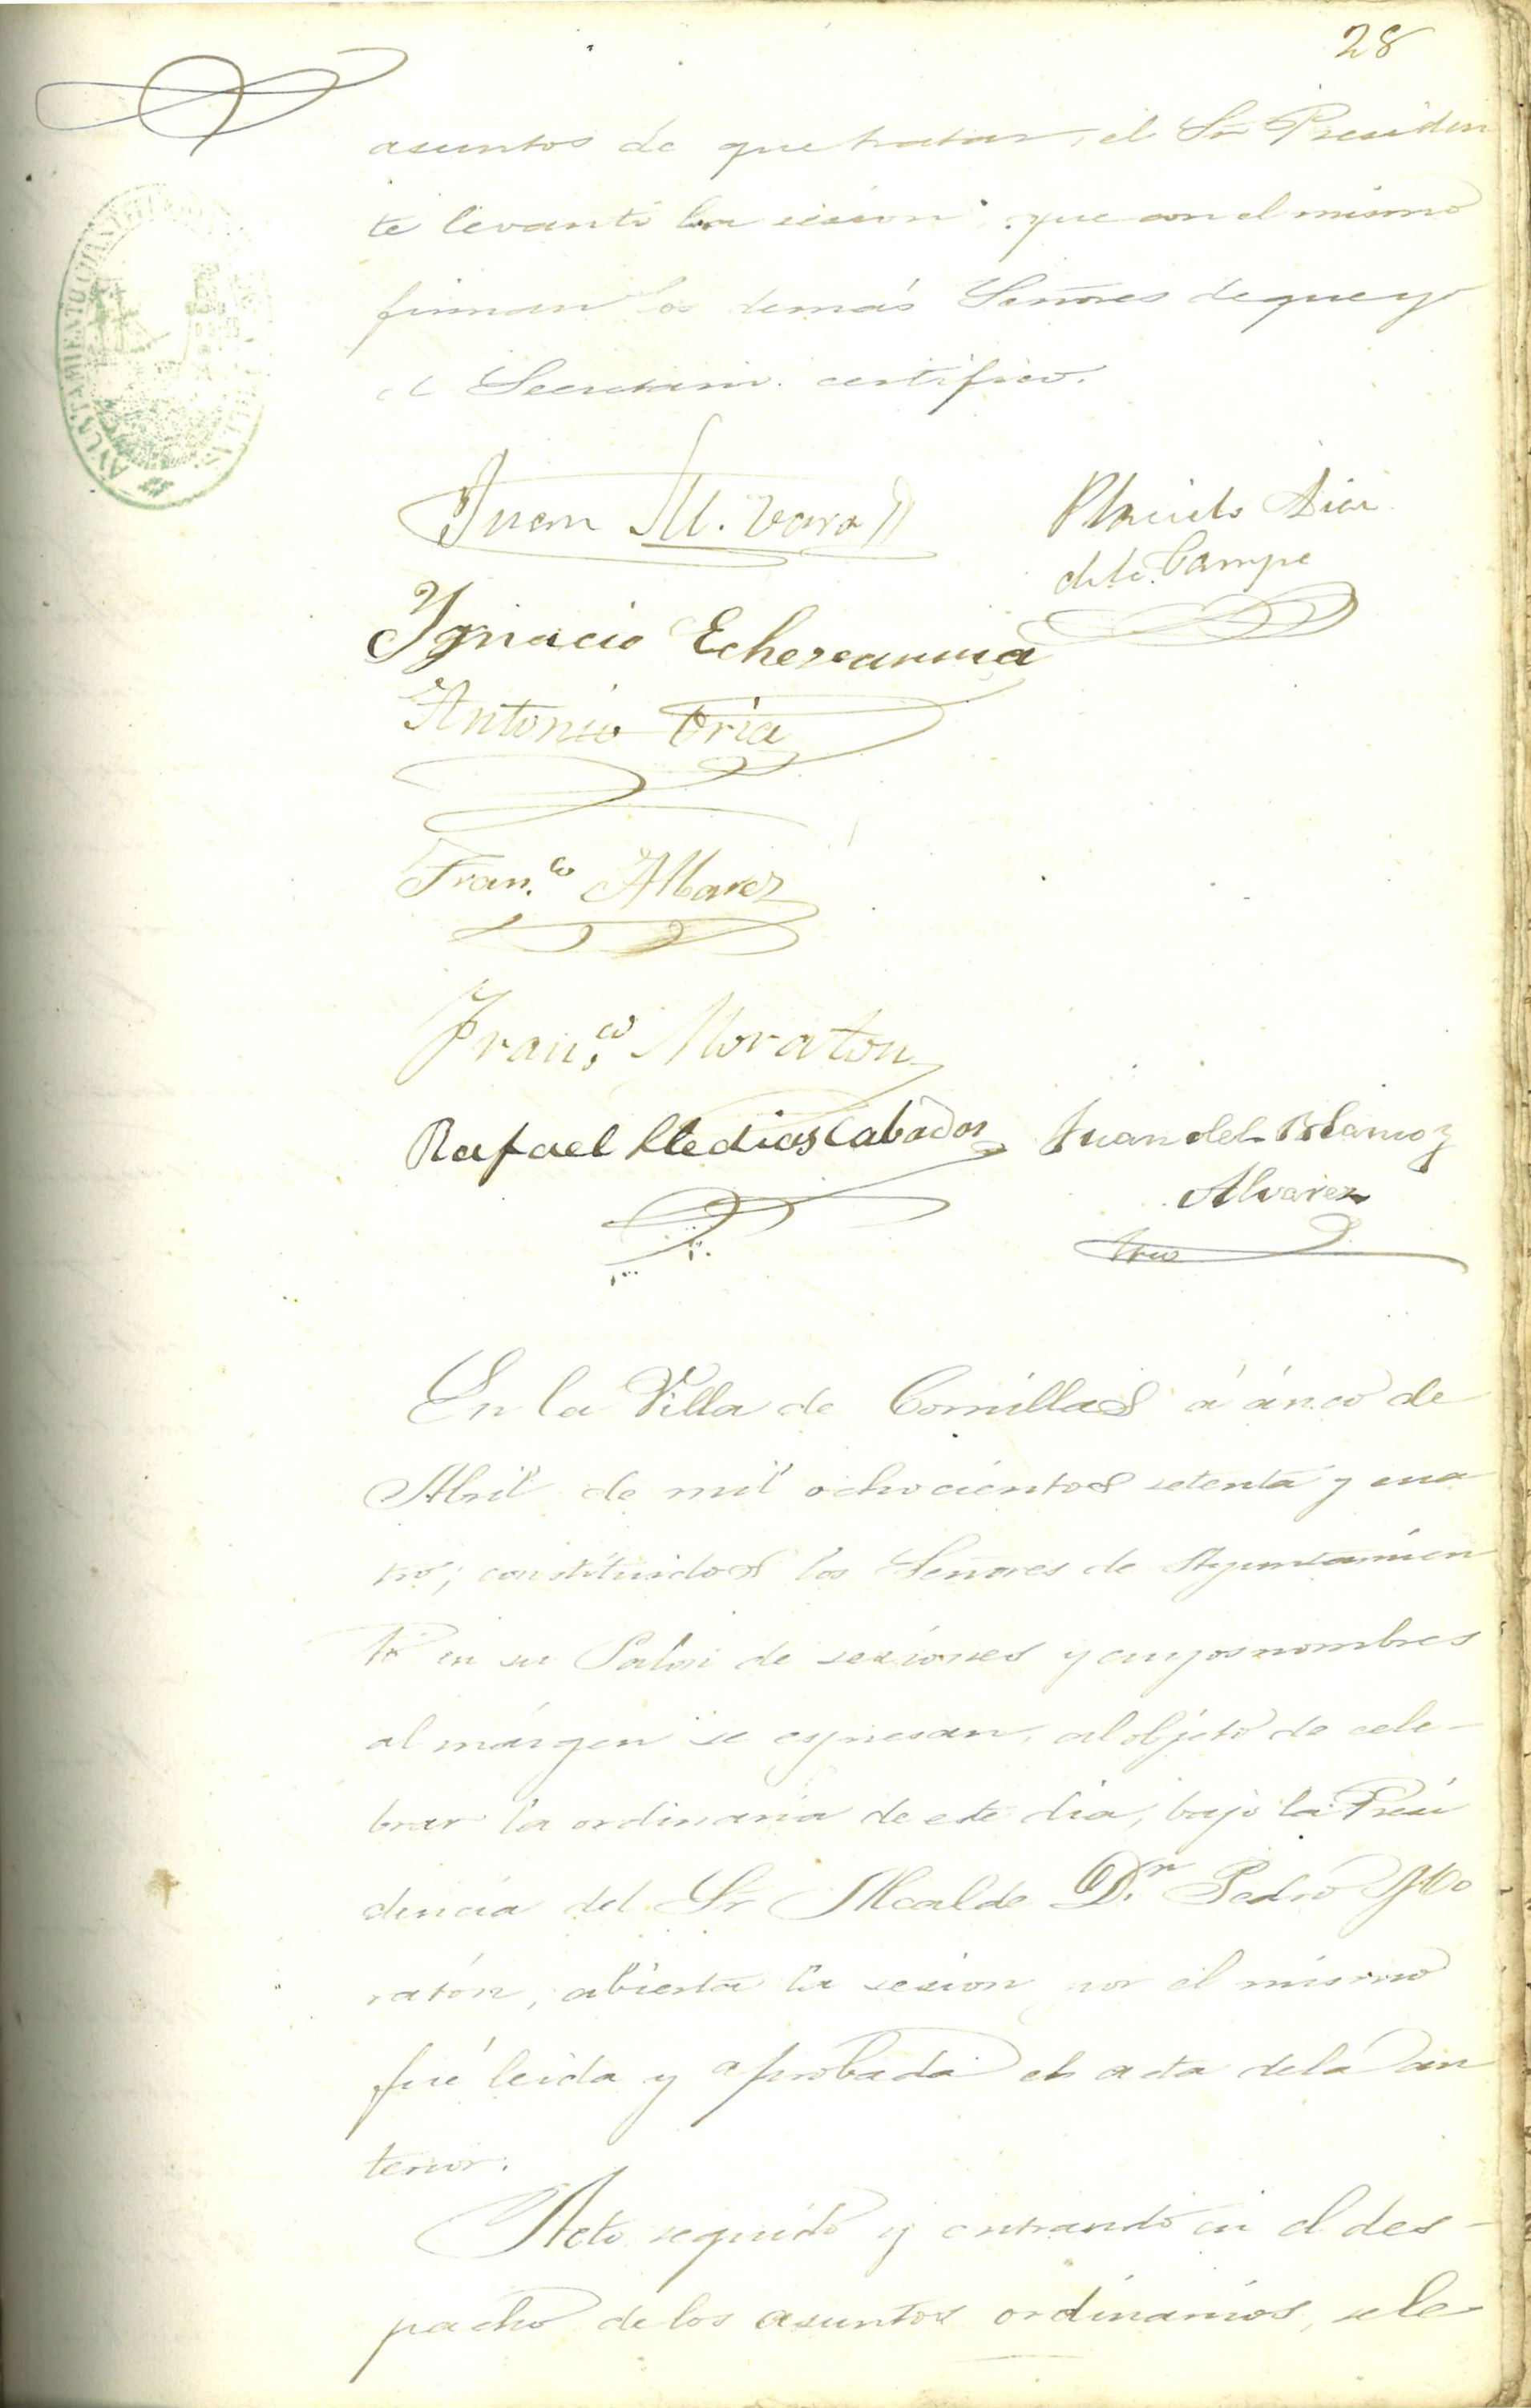 28
asuntos de que tratar, el Sr Presiden
te levantó la sesion que con el mismo
firman los demás Señores de que yo
el Secretario certifico.
AYUNTAMIENTO
Juan M. Vara
Placido Diaz
de la Campa
Ygnacio
Antonio Oria
Fran.co Albarez
Fran.co Moraton
Rafael
Juan del Blanco y
Alvarez
Srio
En la Villa de Comillas á cinco de
Abril de mil ochocientos setenta y cua
tro; constituidos los Señores de Ayuntamien
to en su Salon de sesiones y cuyos nombres
al márgen se espresan, al objeto de cele-
brar la ordinaria de este dia, bajo la Presi
dencia del Sr Alcalde D.n Pedro Mo
ratón, abierta la sesion por el mismo
fué leida y aprobada el acta de la an
terior.
Acto seguido y entrando en el des-
pacho de los asuntos ordinarios, se le